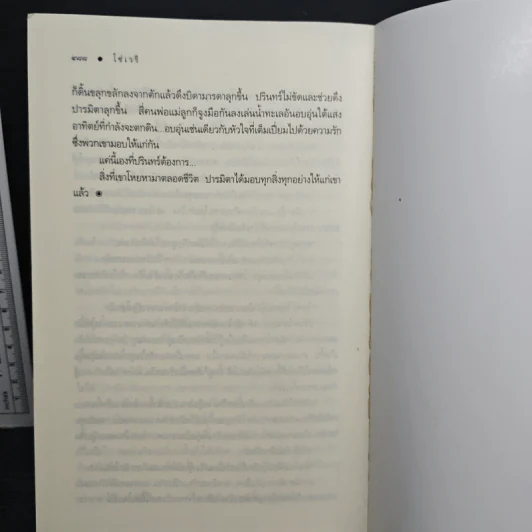 ๑๗๘๘ ● โซ่เวรี
ก็ดิ้นขลุกขลักลงจากตักแล้วดึงบิดามารดาลุกขึ้น ปรินทร์ไม่ขัดและช่วยดึง
ปารมิตาลุกขึ้น สี่คนพ่อแม่ลูกก็จูงมือกันลงเล่นน้ำทะเลอันอบอุ่นใต้แสง
อาทิตย์ที่กำลังจะตกดิน...อบอุ่นเช่นเดียวกับหัวใจที่เต็มเปี่ยมไปด้วยความรัก
ซึ่งพวกเขามอบให้แก่กัน
แค่นี้เองที่ปรินทร์ต้องการ...
สิ่งที่เขาโหยหามาตลอดชีวิต ปารมิตาได้มอบทุกสิ่งทุกอย่างให้แก่เขา
แล้ว